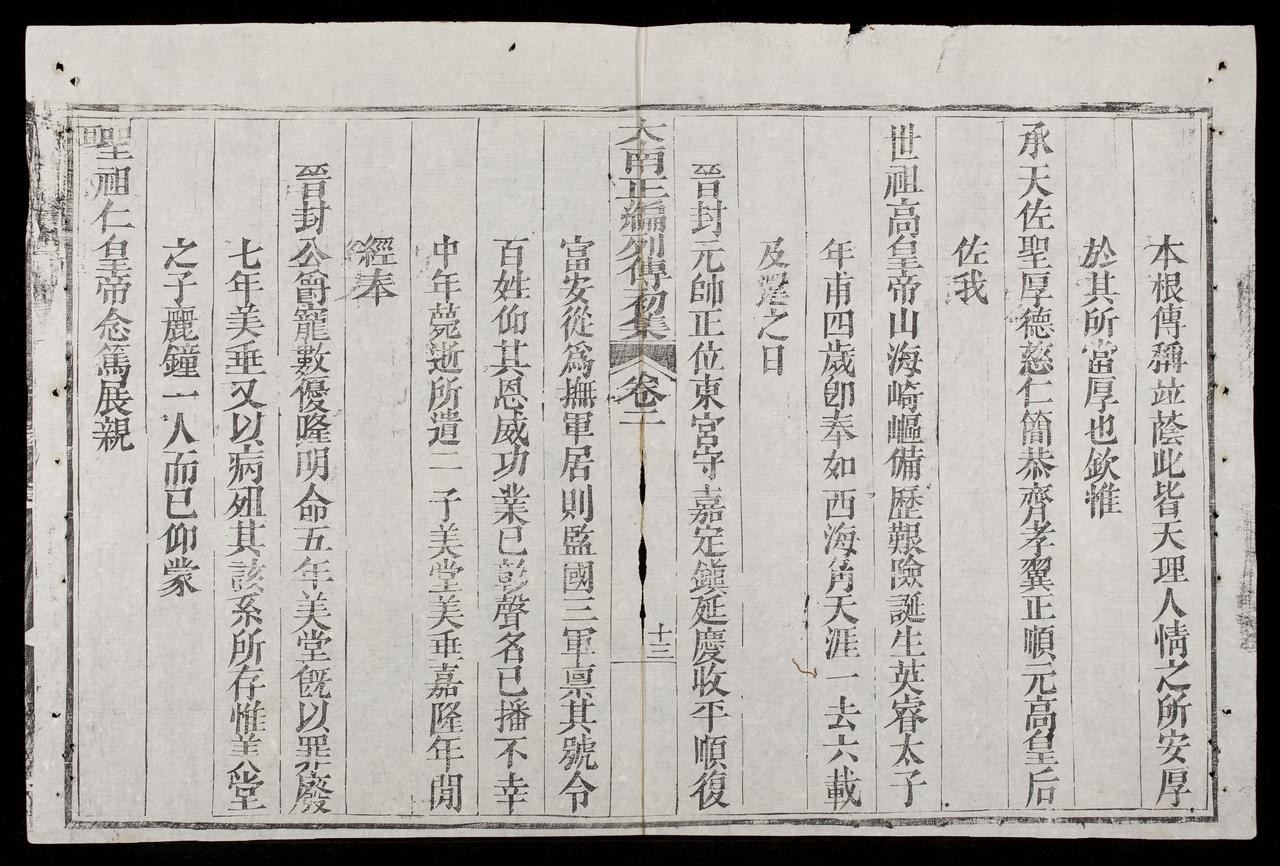 本根傳稱並蔭此皆天理人情之所安厚
於其所當厚也欽惟
承天佐聖厚德慈仁簡恭齊孝翼正順元高皇后
佐我
世祖高皇帝山海崎嶇備歷艱險誕生英睿太子
年甫四歲卽奉如西海角天涯一去六載
及還之日
晉封元帥正位東宮守嘉定鎮延慶收平順復
大南正編列傳初集 卷二 十三
富安從爲撫軍居則監國三軍禀其號令
百姓仰其恩威功業已彰聲名已播不幸
中年薨逝所遺二子美堂美垂嘉隆年間
經奉
晉封公爵寵數優隆明命五年美堂旣以罪廢
七年美垂又以病殂其該系所存惟美堂
之子麗鐘一人而已仰蒙
聖祖仁皇帝念篤展親